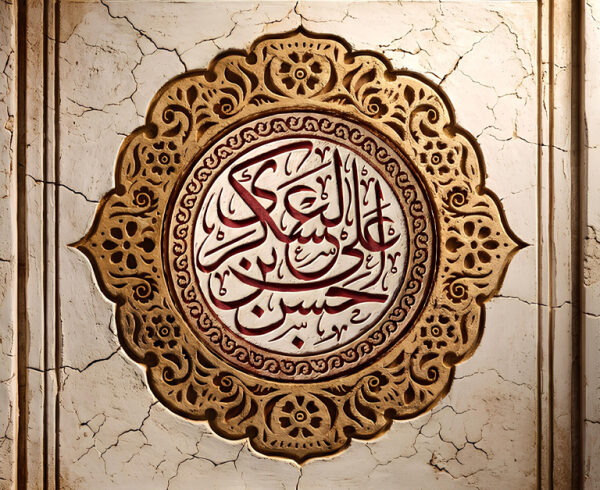 حسن بن علی العسکری